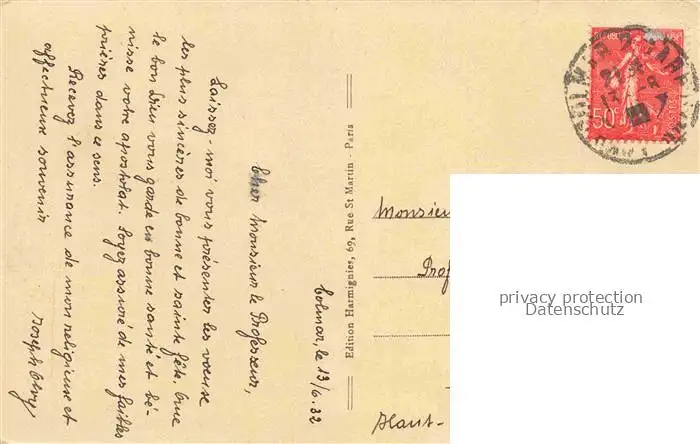 Colmar, le 13/6.32
Cher Monsieur le Professeur,
Laissez-moi vous présenter les voeux
les plus sincères de bonne et sainte fête. Que
le bon Dieu vous garde en bonne santé et bé-
nisse votre apostolat. Soyez assuré de mes faibles
prières dans ce sens.
Recevez l'assurance de mon religieux et
affectueux souvenir
Joseph
Edition Harmignies, 69, Rue St Martin - Paris
50
Monsieu
Prof
Haut-
privacy protection
Datenschutz